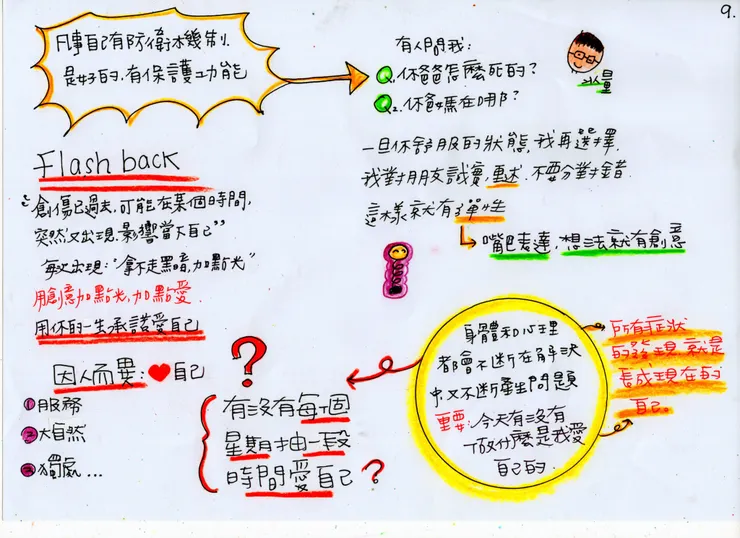 9.
凡事自己有防衛機制.
是好的.有保護功能
有人問我:
Q1.你爸爸怎麼死的?
Q2.你媽媽在哪?
一旦你舒服的狀態,我再選擇.
我對朋友誠實,重述.不要分對錯.
這樣就有彈性
嘴巴表達,想法就有創意
Flash back
"創傷已過去,可能在某個時間,
突然又出現.影響當下自己"
每次出現:"拿不走黑暗,加點光"
用創意加點光,加點愛.
用你的一生承諾愛自己
因人而異:❤自己
①服務
②大自然
③獨處...
?
有沒有每個
星期抽一段
時間愛自己?
身體和心理
都會不斷在解決
中.又不斷產生問題
重要:今天有沒有
做什麼是我愛
自己的.
所有症狀
的發現.就是
長成現在的
自己.